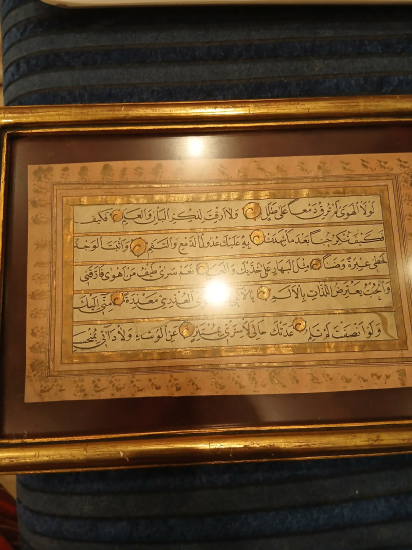 لَوْلَا الْهَوَى لَمْ تُرِقْ دَمْعًا عَلَى طَلَلٍ وَلَا أَرِقْتَ لِذِكْرِ الْبَانِ وَالْعَلَمِ فَكَيْفَ
فَكَيْفَ تُنْكِرُ حُبًّا بَعْدَ مَا شَهِدَتْ بِهِ عَلَيْكَ عُدُولُ الدَّمْعِ وَالسَّقَمِ وَأَثْبَتَ الْوَجْدُ
خَطَّىْ عَبْرَةٍ وَضَنًا مِثْلَ الْبَهَارِ عَلَى خَدَّيْكَ وَالْعَنَمِ نَعَمْ سَرَى طَيْفُ مَنْ أَهْوَى فَأَرَّقَنِي
وَالْحُبُّ يَعْتَرِضُ اللَّذَّاتِ بِالْأَلَمِ يَا لَائِمِي الْعُذْرِيِّ مَعْذِرَةً مِنِّي إِلَيْكَ
وَلَوْ أَنْصَفْتَ لَمْ تَلُمِ عَدَتْكَ حَالِيَ لَا سِرِّي بِمُسْتَتِرٍ عَنِ الْوُشَاةِ وَلَا دَائِي